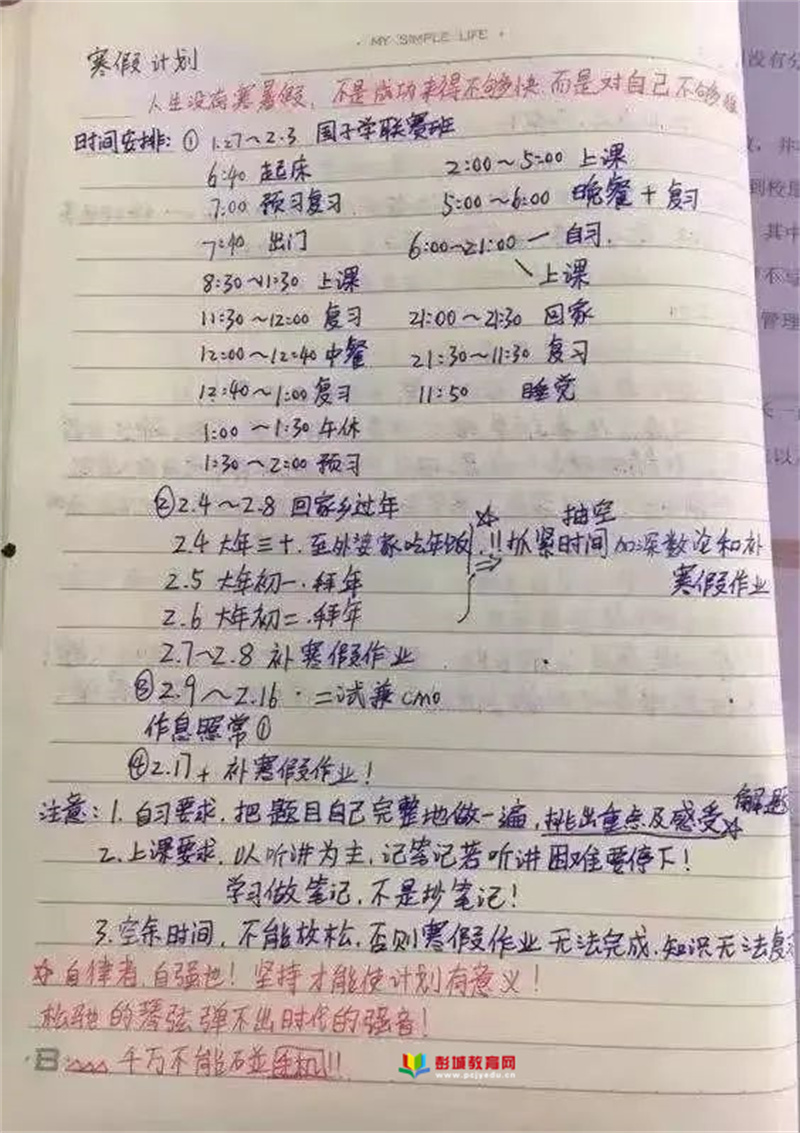 MY SIMPLE LIFE
寒假计划
人生没有寒暑假，不是成功来得不够快 而是对自己不够狠
时间安排：① 1.27～2.3 国子学联赛班
6:40 起床
7:00 预习复习
7:40 出门
8:30～11:30 上课
11:30～12:00 复习
12:00～12:40 中餐
12:40～1:00 复习
1:00～1:30 午休
1:30～2:00 预习
2:00～5:00 上课
5:00～6:00 晚餐＋复习
6:00～21:00 — 自习.
上课
21:00～21:30 回家
21:30～11:30 复习
11:50 睡觉
②2.4～2.8 回家乡过年
2.4 大年三十.至外婆家吃年饭
2.5 大年初一.拜年
2.6 大年初二.拜年
☆ 抽空
!!抓紧时间加深数论和补
寒假作业
2.7～2.8 补寒假作业
③2.9～2.16·二试兼CMO
作息照常①
④2.17+ 补寒假作业！
注意：1. 自习要求.把题目自己完整地做一遍，挑出重点及感受☆ 解题
2.上课要求.以听讲为主，记笔记若听讲困难要停下！
学习做笔记，不是抄笔记！
3.空余时间，不能放松，否则寒假作业无法完成.知识无法复
☆ 自律者，自强也！坚持才能使计划有意义！
松驰的琴弦弹不出时代的强音！
千万不能碰手机!!
彭城教育网
www.pcjyedu.cn
没有分
到校
其中
不写
管理